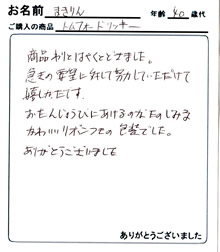 お名前 まきりん 年齢 40 歳代
ご購入の商品 トムフォードリッキー
商品わりとはやくとどきました。
急ぎの要望に対して努力していただけて
嬉しかたです。
おたんじょうびにあげるのがたのしみな
かわいいリボンつきの包装でした。
ありがとうございました
ありがとうございました